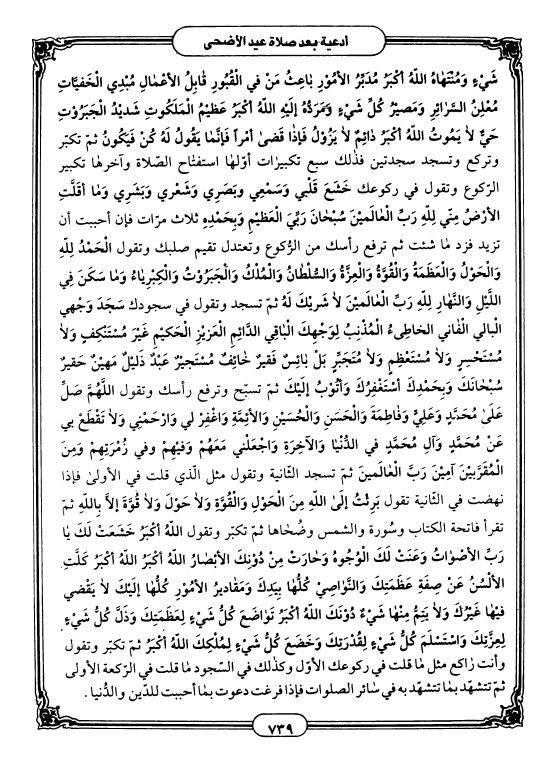 أدعية بعد صلاة عيد الأضحى
شَيْءٍ وَمُنْتَهاهُ اللّهُ أكْبَرُ مُدَبِّرُ الأُمُورِ بَاعِثُ مَنْ في القُبُورِ قَابِلُ الأعْمالِ مُبْدِي الْخَفِيَّاتِ
مُعْلِنُ السَّرَائِرِ وَمَصِيرُ كُلِّ شَيْءٍ وَمَرَدُّهُ إلَيْهِ اللّهُ أكْبَرُ عَظِيمُ الْمَلَكُوتِ شَدِيدُ الْجَبَرُوْتِ
حَيٌّ لاٰ يَمُوتُ اللّهُ أكْبَرُ دائِمٌ لاٰ يَزُوْلُ فَإذا قَضىٰ أمْراً فَإنَّمٰا يَقُولُ لَهُ كُنْ فَيَكُونُ ثمّ تكبّر
وتركع وتسجد سجدتين فذلك سبع تكبيرات أوّلهٰا استفتٰاح الصّلاة وآخرهٰا تكبير
الرّكوع وتقول في ركوعك خَشَعَ قَلْبي وَسَمْعِي وبَصَرِي وَشَعْري وَبَشَرِي وَمٰا أقَلَّتِ
الأرْضُ مِنّي لِلّهِ رَبِّ الْعٰالَمينَ سُبْحٰانَ رَبِّيَ الْعَظِيمِ وَبِحَمْدِهِ ثلاث مرّات فإن أحببت أن
تزيد فزد مٰا شئت ثم ترفع رأسك من الرُّكوع وتعتدل تقيم صلبك وتقول الْحَمْدُ لِلّهِ
وَالْحَوْلُ وَالْعَظَمَةُ وَالْقُوَّةُ وَالْعِزَّةُ وَالسُّلْطٰانُ وَالْمُلْكُ وَالْجَبَرُوْتُ وَالْكِبْرِيٰاءُ وَمٰا سَكَنَ فِي
اللَّيْلِ وَالنَّهٰارِ لِلّهِ رَبِّ الْعٰالَمينَ لاٰ شَرِيْكَ لَهُ ثمّ تسجد وتقول في سجودك سَجَدَ وَجْهي
البالي الْفٰاني الخاطىءُ الْمُذْنِبُ لِوَجْهِكَ الْبٰاقي الدَّائِمِ الْعَزيزِ الْحَكيمِ غَيْرَ مُسْتَنْكِفٍ وَلاٰ
مُسْتَحْسِرٍ وَلاٰ مُسْتَعْظِمٍ وَلاٰ مُتَجَبِّرٍ بَلْ بٰائِسٌ فَقيرٌ خٰائِفٌ مُسْتَجيرٌ عَبْدٌ ذَليلٌ مَهيْنٌ حَقيرٌ
سُبْحٰانَكَ وَبِحَمْدِكَ أسْتَغْفِرُكَ وَأتُوْبُ إلَيْكَ ثم تسبّح وترفع رأسك وتقول اللّهُمَّ صَلِّ
عَلىٰ مُحَمَّدٍ وَعَلِيٍّ وَفٰاطِمَةَ وَالْحَسَنِ وَالْحُسَيْنِ وَالأئِمَّةِ وَاغْفِرْ لي وَارْحَمْني وَلاٰ تَقْطَعْ بي
عَنْ مُحَمَّدٍ وَآلِ مُحَمَّدٍ في الدُّنْيٰا وَالآخِرَةِ وَاجْعَلْني مَعَهُمْ وَفيْهِمْ وفي زُمْرَتِهِمْ وَمِنَ
الْمُقَرَّبيْنَ آميْنَ رَبَّ الْعٰالَمينَ ثمّ تسجد الثّانية وتقول مثل الّذي قلت في الأولىٰ فإذا
نهضت في الثّانية تقول بَرِئْتُ إلَىٰ اللّهِ مِنَ الْحَوْلِ وَالْقُوَّةِ وَلاٰ حَوْلَ وَلاٰ قُوَّةَ إلاَّ باللّهِ ثمّ
تقرأ فاتحة الكتاب وسُورة والشمس وضُحٰاهٰا ثمّ تكبّر وتقول اللّهُ أكْبَرُ خَشَعَتْ لَكَ يٰا
رَبِّ الأصْوٰاتُ وَعَنَتْ لَكَ الْوُجُوهُ وَحٰارَتْ مِنْ دُوْنِكَ الأبْصٰارُ اللّهُ أكْبَرُ اللّهُ أكْبَرُ كَلَّتِ
الألْسُنُ عَنْ صِفَةِ عَظَمَتِكَ وَالنَّوٰاصِي كُلُّهٰا بِيَدِكَ وَمَقٰاديرُ الأمُوْرِ كُلُّهٰا إلَيْكَ لاٰ يَقْضي
فيْهٰا غَيْرُكَ وَلاٰ يَتِمُّ مِنْهٰا شَيْءٌ دُوْنَكَ اللّهُ أكْبَرُ تَوٰاضَعَ كُلُّ شَيْءٍ لِعَظَمَتِكَ وَذَلَّ كُلُّ شَيْءٍ
لِعِزَّتِكَ وَاسْتَسْلَمَ كُلُّ شَيْءٍ لِقُدْرَتِكَ وَخَضَعَ كُلُّ شَيْءٍ لِمُلْكِكَ اللّهُ أكْبَرُ ثمّ تكبّر وتقول
وأنت رٰاكع مثل مٰا قلت في ركوعك الأوّل وكذلك في السّجود مٰا قلت في الرّكعة الأولى
ثمّ تتشهّد بمٰا تتشهّد به في سٰائر الصلوات فإذا فرغت دعوت بمٰا أحببت للدّين والدُّنيا .
٧٣٩